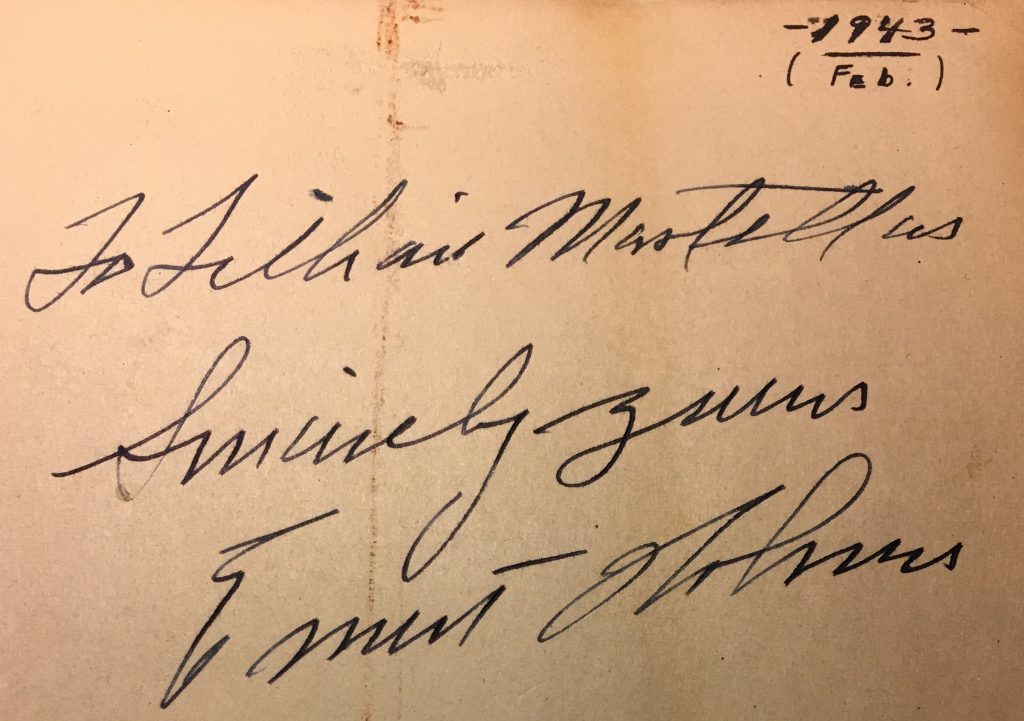 -1943-
(Feb.)
To Lillian
Sincerely yours
Ernest Holmes